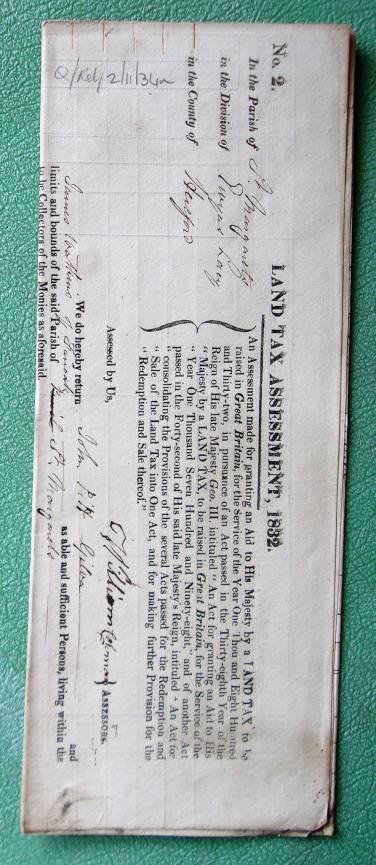 No. 2.
LAND TAX ASSESSMENT, 1832.
In the Parish of St. Margarets
in the Division of Ewyas Lacy
in the County of Hereford
An Assessment made for granting an Aid to His Majesty by a LAND TAX to be
raised in Great Britain, for the Service of the Year One Thou and Eight Hundred
and Thirty-two, in pursuance of an Act passed in the Thirty-eighth Year of the
Reign of His late Majesty Geo. III. intituled "An Act for granting an Aid to His
"Majesty by a LAND TAX, to be raised in Great Britain, for the Service of the
"Year One Thousand Seven Hundred and Ninety-eight," and of another Act
passed in the Forty-second of His said late Majesty's Reign, intituled "An Act for
"consolidating the Provisions of the several Acts passed for the Redemption and
"Sale of the Land Tax into One Act, and for making further Provision for the
"Redemption and Sale thereof."
Assessed by Us,
William ASSESSORS.
We do hereby return John Giles and
James Watkins of as able and sufficient Persons, living within the
limits and bounds of the said Parish of St. Margarets
to be Collectors of the Monies as aforesaid.
Q/Rel/2/11/34